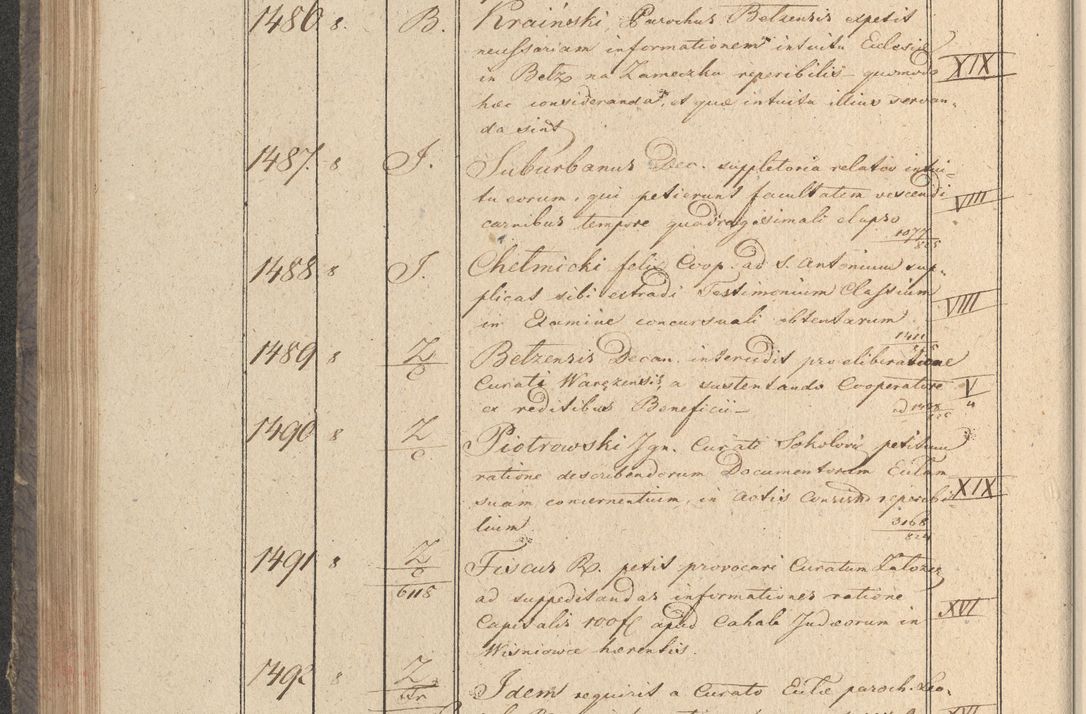 1486 8. B. Kraiński, Parochus Betzensis expetit
necessariam informationem intuitu Eclesiæ
in Betz na Zameczku reperibilis quomodo XIX
hæc consideranda, et quæ intuitu illius servan-
da sint
1487. 8 J. Suburbanus Dec. suppletoria relatos intui-
tu eorum, qui petierunt facultatem vescendi VIII
carnibus tempore quadragesimali elapso
1077
825
1488 8 J. Chełmicki felix Coop. ad S. Antonium sup-
plicat sibi extradi Testimonium Classium VIII
in Examine concursuali obtentarum
1489 8 Z/C Betzensis Decan. intercedit pro eliberatione
Curati Waręzensis, a sustentando Cooperatore V
ex reditibus Beneficii
1490 8 Z/C Piotrowski Ign. Curati Sokolov. petitum
ratione describendorum Documentorum Ecclam
suam concernentium, in actis Consist. reperibi- XIX
lium
3168
824
1491 8 Z/C Fiscus R. petit provocari Curatum Załozec
6118 ad suppeditandas informationes ratione
Capitalis 100 f apud Cahala Judæorum in XVI
Wisniowce hærentis.
1492 8 Z Idem requirit a Curato Eccłæ paroch. Leo-